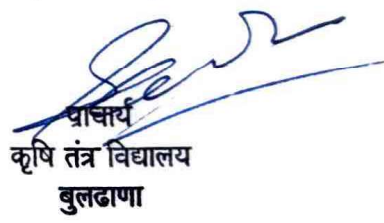 प्राचार्य
कृषि तंत्र विद्यालय
बुलढाणा